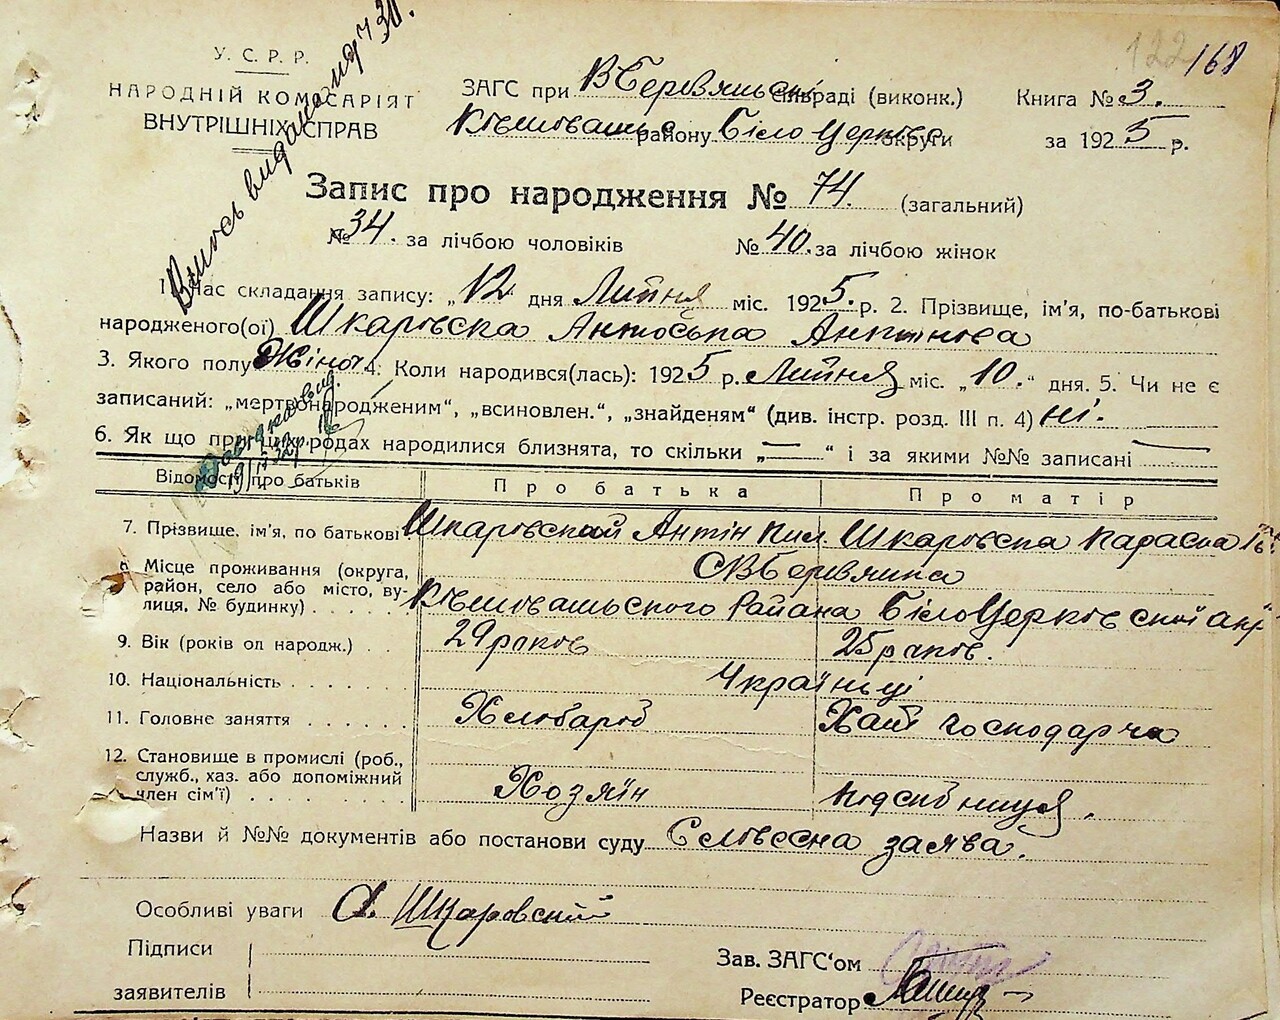 122 168
У. С. Р. Р.
НАРОДНІЙ КОМІСАРІЯТ
ВНУТРІШНІХ СПРАВ
ЗАГС при ВБеревянсь сільраді (виконк.) Книга № 3.
району Біло Церковс округи за 1925 р.
Запис про народження № 74. (загальний)
№ 34. за лічбою чоловіків № 40. за лічбою жінок
1. Час складання запису: „12 дня Липня міс. 1925. р. 2. Прізвище, ім'я, по-батькові
народженого(ої) Шкаровска Антоська Антонова
3. Якого полу Жіноч 4. Коли народився(лась): 1925 р. Липня міс. „10.“ дня. 5. Чи не є
записаний: „мертвонародженим“, „всиновлен.“, „знайденям“ (див. інстр. розд. III п. 4) ні.
6. Як що при цих родах народилися близнята, то скільки „—“ і за якими №№ записані —
Відомості про батьків Про батька Про матір
7. Прізвище, ім'я, по батькові Шкаровской Антін Пил. Шкаровска Параска
8. Місце проживання (округа, район, село або місто, вулиця, № будинку) СВБеревянка
района БілоЦерковской окр
9. Вік (років од народж.) 29 раков 25 раков.
10. Національність Україньці
11. Головне заняття Хлібароб Хатн господарча
12. Становище в промислі (роб., служб., хаз. або допоміжний член сім'ї) Хозяїн подсибниця.
Назви й №№ документів або постанови суду Словесна заява.
Особливі уваги А. Шкаровский
Підписи
заявителів
Зав. ЗАГС‘ом
Реєстратор